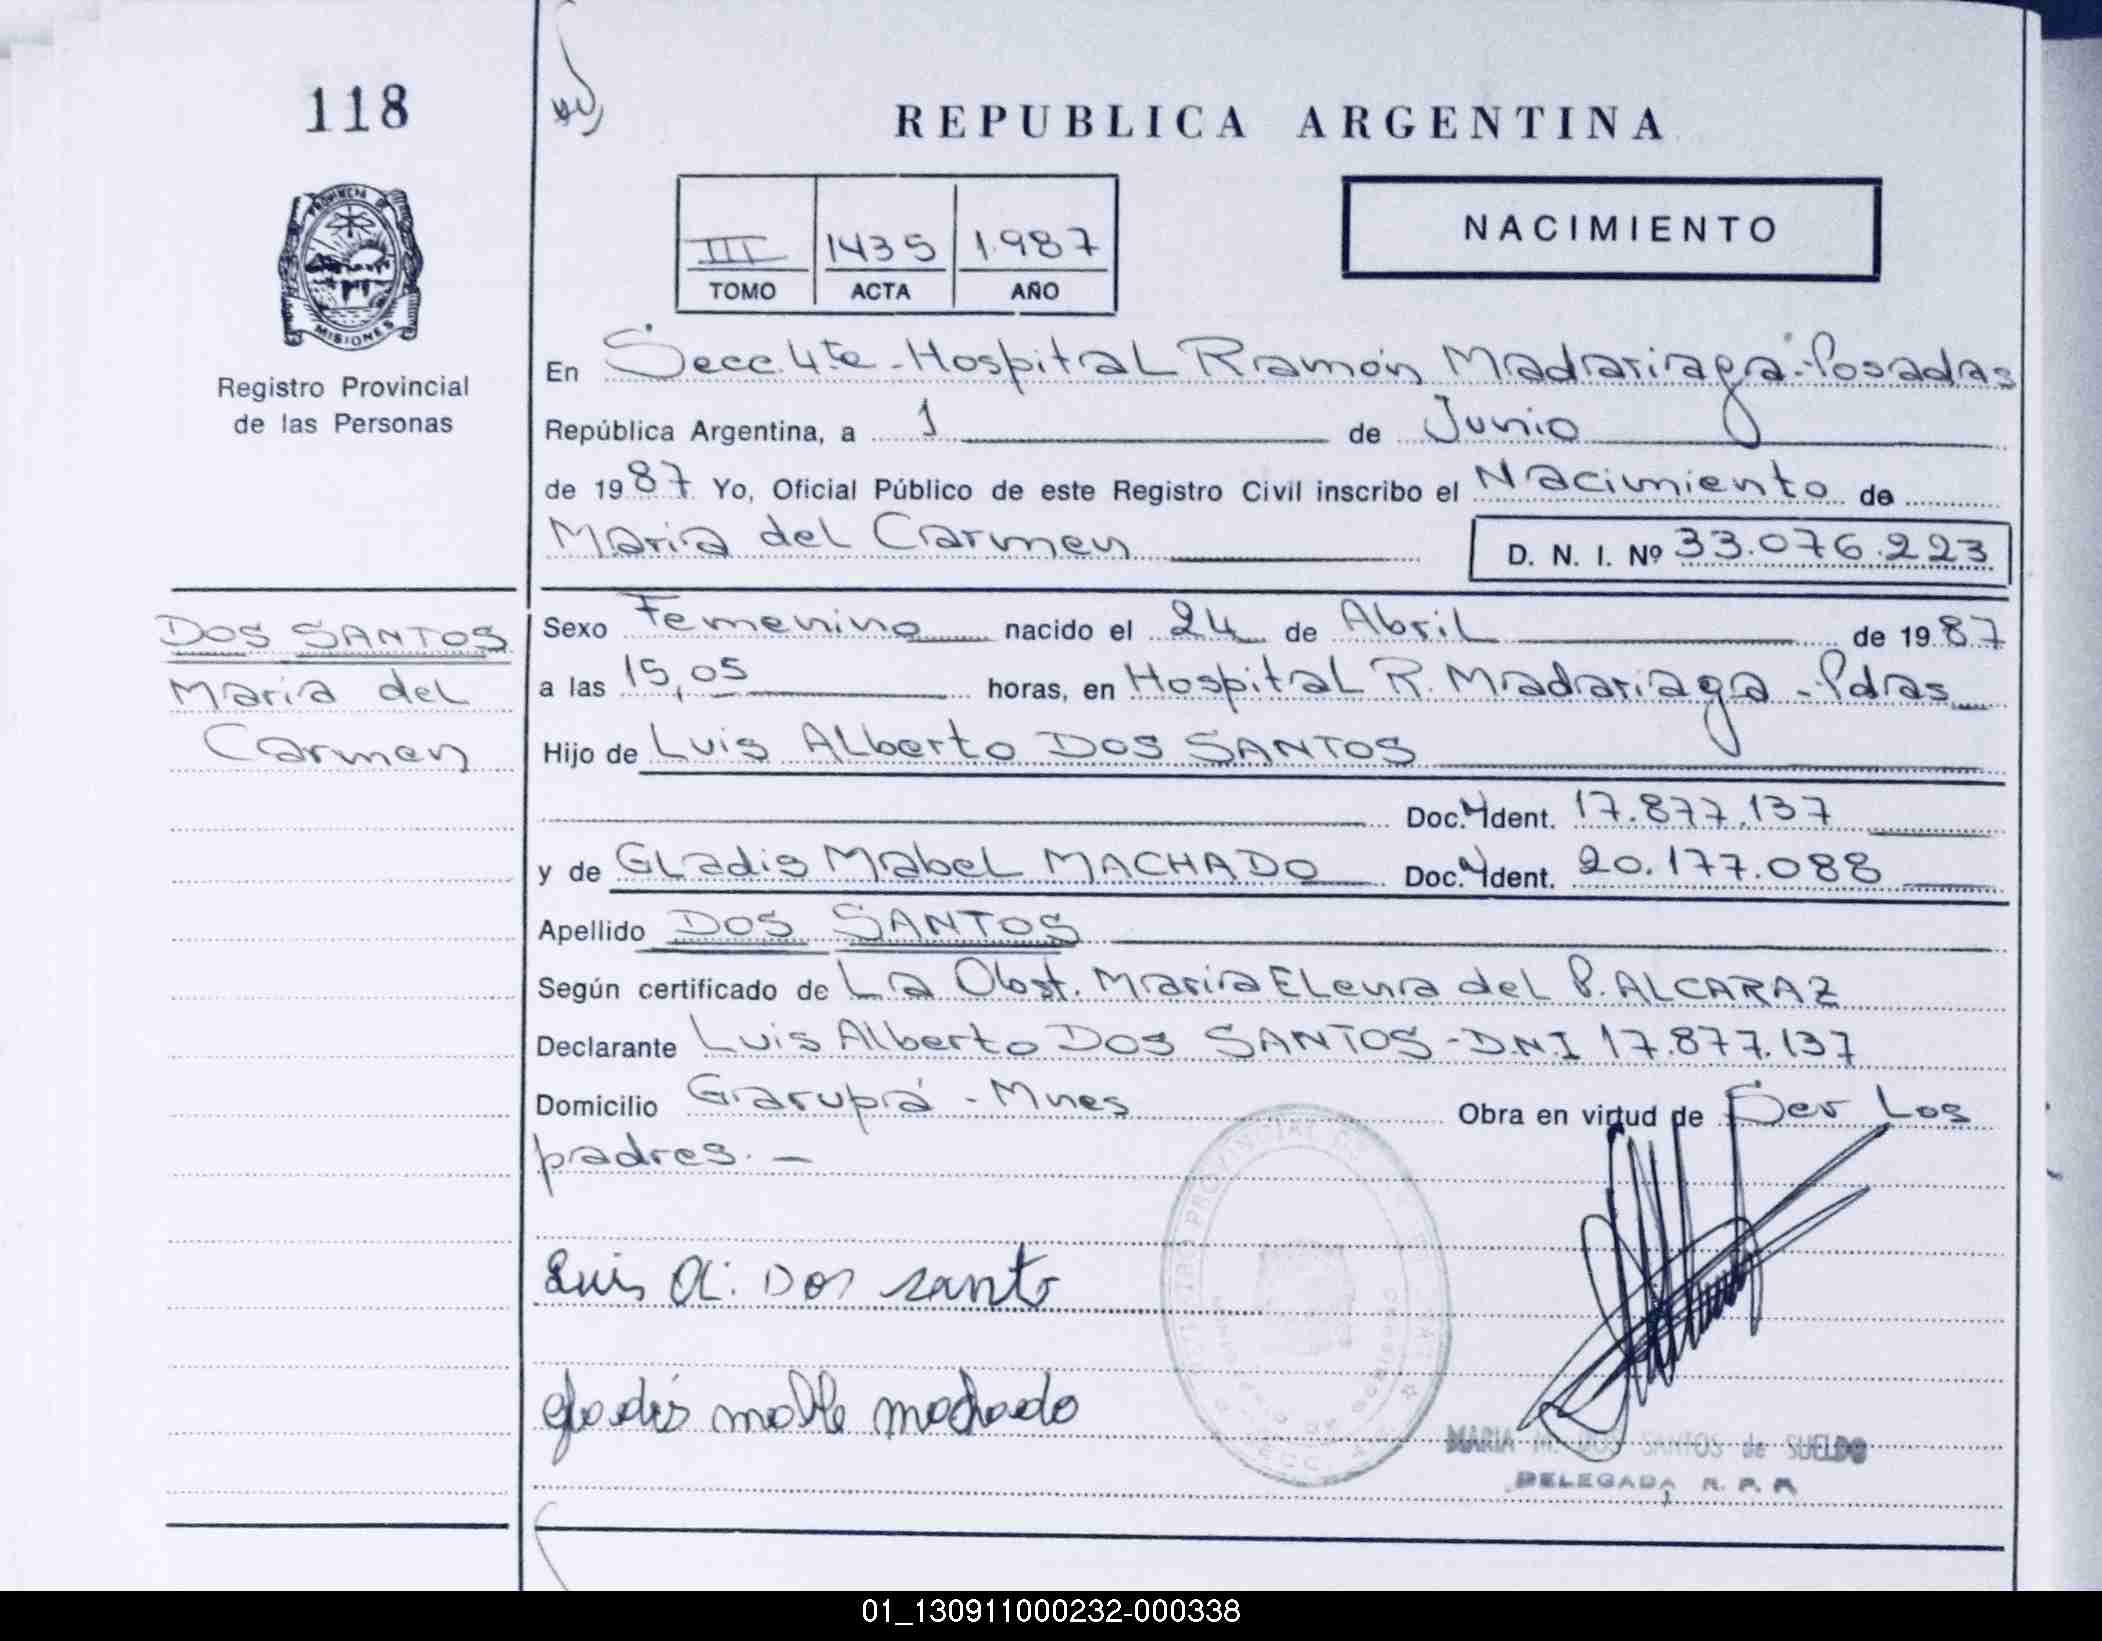 118
REPUBLICA ARGENTINA
PROVINCIA DE
MISIONES
Registro Provincial
de las Personas
III 1435 1.987
TOMO ACTA AÑO
NACIMIENTO
En Secc. 4ta - Hospital Ramón Madariaga - Posadas
República Argentina, a 1 de Junio
de 1987 Yo, Oficial Público de este Registro Civil inscribo el Nacimiento de
Maria del Carmen D. N. I. Nº 33.076.223
DOS SANTOS
Maria del
Carmen
Sexo Femenino nacido el 24 de Abril de 1987
a las 15,05 horas, en Hospital R. Madariaga - Pdas
Hijo de Luis Alberto DOS SANTOS
Doc. Ident. 17.877.137
y de Gladis Mabel MACHADO Doc. Ident. 20.177.088
Apellido DOS SANTOS
Según certificado de La Obst. Maria Elena del P. ALCARAZ
Declarante Luis Alberto DOS SANTOS - D.N.I 17.877.137
Domicilio Garupá - Mnes Obra en virtud de Ser Los
padres. -
Luis A. Dos santo
gladis mable machado
MARIA M. DOS SANTOS de SUELDO
DELEGADA R. P. P.
01_130911000232-000338